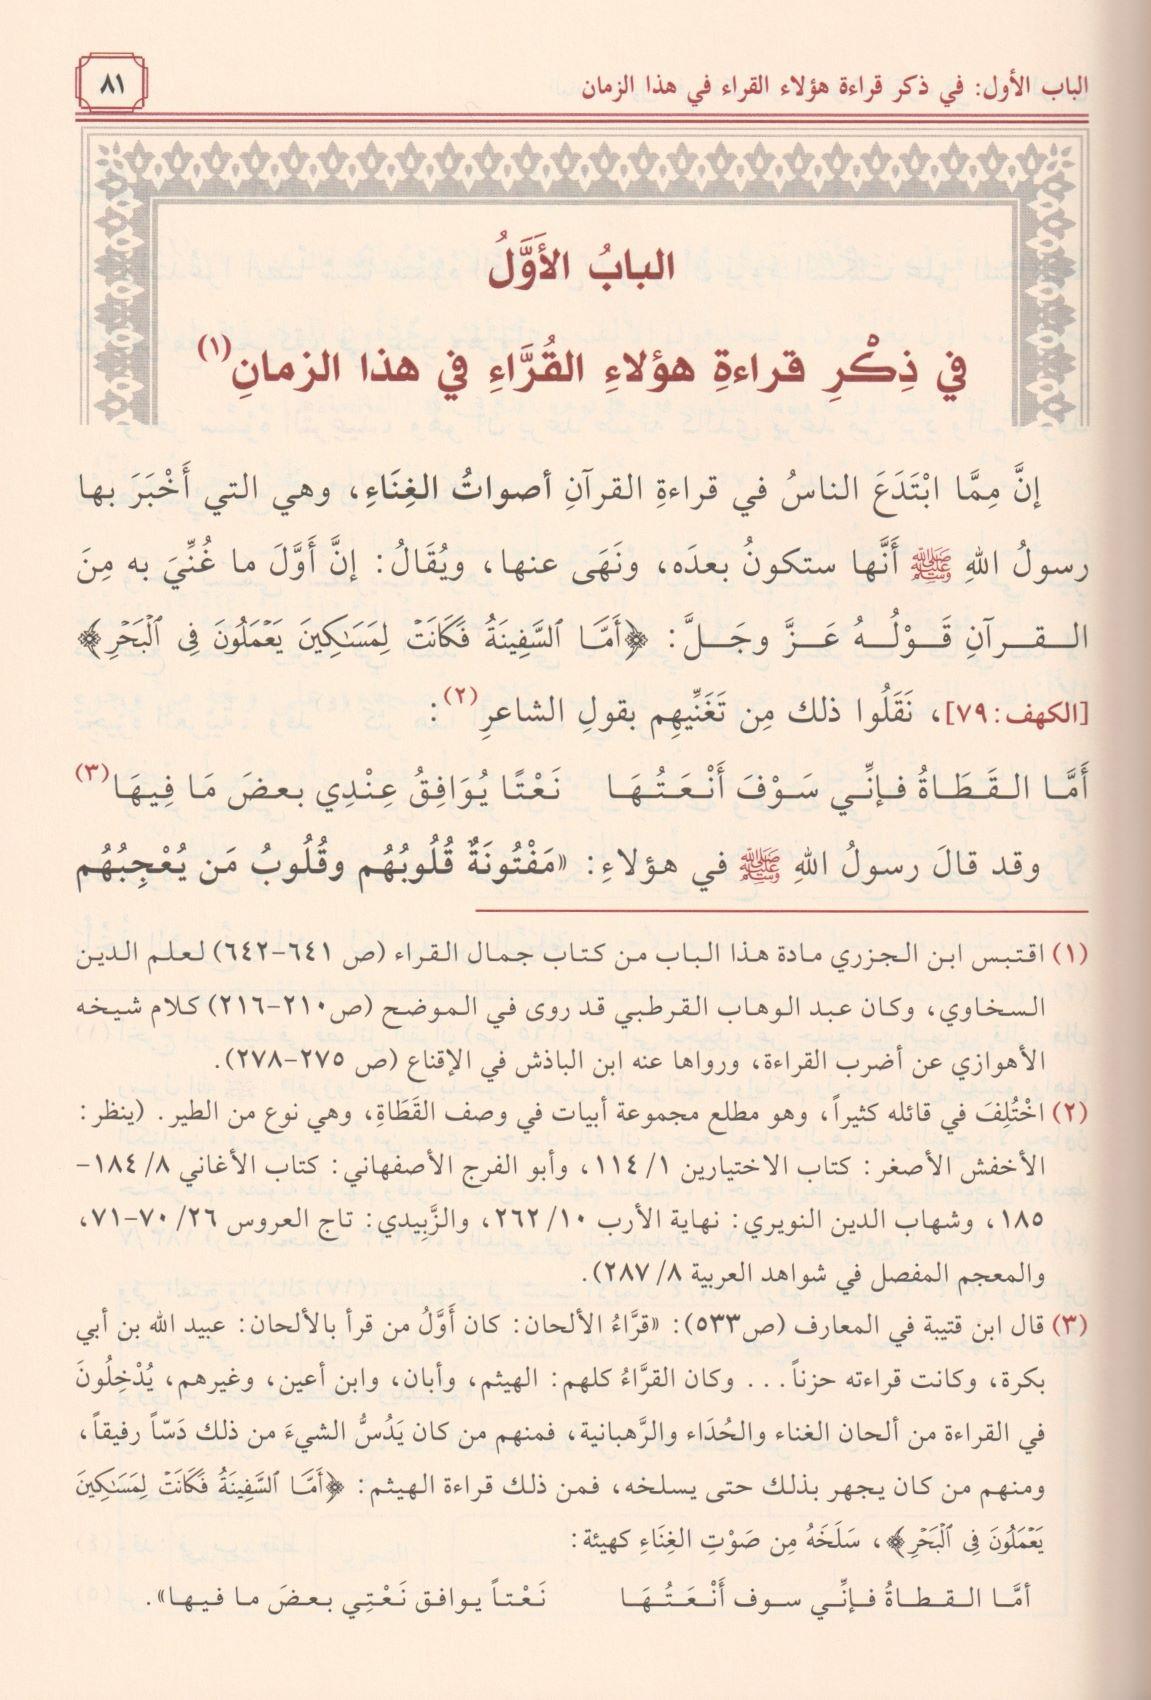 الباب الأول: في ذكر قراءة هؤلاء القراء في هذا الزمان
٨١
البابُ الأَوَّلُ
في ذِكْرِ قراءةِ هؤلاءِ القُرَّاءِ في هذا الزمانِ(١)
إنَّ مِمَّا ابْتَدَعَ الناسُ في قراءةِ القرآنِ أصواتُ الغِنَاءِ، وهي التي أَخْبَرَ بها
رسولُ اللهِ ﷺ أَنَّها ستكونُ بعدَه، ونَهَى عنها، ويُقَالُ: إنَّ أَوَّلَ ما غُنِّيَ به مِنَ
القرآنِ قَوْلُهُ عَزَّ وجَلَّ: ﴿أَمَّا ٱلسَّفِينَةُ فَكَانَتۡ لِمَسَٰكِينَ يَعۡمَلُونَ فِي ٱلۡبَحۡرِ﴾
[الكهف: ٧٩]، نَقَلُوا ذلك مِن تَغَنِّيهِم بقولِ الشاعرِ(٢):
أَمَّا القَطَاةُ فإنِّي سَوْفَ أَنْعَتُهَا نَعْتًا يُوَافِقُ عِنْدِي بعضَ مَا فِيهَا(٣)
وقد قالَ رسولُ اللهِ ﷺ في هؤلاءِ: «مَفْتُونَةٌ قُلُوبُهُم وقُلُوبُ مَن يُعْجِبُهُم
(١) اقتبس ابن الجزري مادة هذا الباب من كتاب جمال القراء (ص ٦٤١-٦٤٢) لعلم الدين
السخاوي، وكان عبد الوهاب القرطبي قد روى في الموضح (ص٢١٠-٢١٦) كلام شيخه
الأهوازي عن أضرب القراءة، ورواها عنه ابن الباذش في الإقناع (ص ٢٧٥-٢٧٨).
(٢) اخْتُلِفَ في قائله كثيراً، وهو مطلع مجموعة أبيات في وصف القَطَاةِ، وهي نوع من الطير. (ينظر:
الأخفش الأصغر: كتاب الاختيارين ١/ ١١٤، وأبو الفرج الأصفهاني: كتاب الأغاني ٨/ ١٨٤-
١٨٥، وشهاب الدين النويري: نهاية الأرب ١٠/ ٢٦٢، والزَّبِيدي: تاج العروس ٢٦/ ٧٠-٧١،
والمعجم المفصل في شواهد العربية ٨/ ٢٨٧).
(٣) قال ابن قتيبة في المعارف (ص٥٣٣): «قرَّاءُ الألحان: كان أَوَّلُ من قرأ بالألحان: عبيد الله بن أبي
بكرة، وكانت قراءته حزناً... وكان القرَّاءُ كلهم: الهيثم، وأبان، وابن أعين، وغيرهم، يُدْخِلُونَ
في القراءة من ألحان الغناء والحُدَاء والرَّهبانية، فمنهم من كان يَدُسُّ الشيءَ من ذلك دَسّاً رفيقاً،
ومنهم من كان يجهر بذلك حتى يسلخه، فمن ذلك قراءة الهيثم: ﴿أَمَّا ٱلسَّفِينَةُ فَكَانَتۡ لِمَسَٰكِينَ
يَعۡمَلُونَ فِي ٱلۡبَحۡرِ﴾، سَلَخَهُ مِن صَوْتِ الغِنَاءِ كهيئة:
أمَّا القطاةُ فإنِّي سوف أَنْعَتُهَا نَعْتاً يوافق نَعْتِي بعضَ ما فيها».